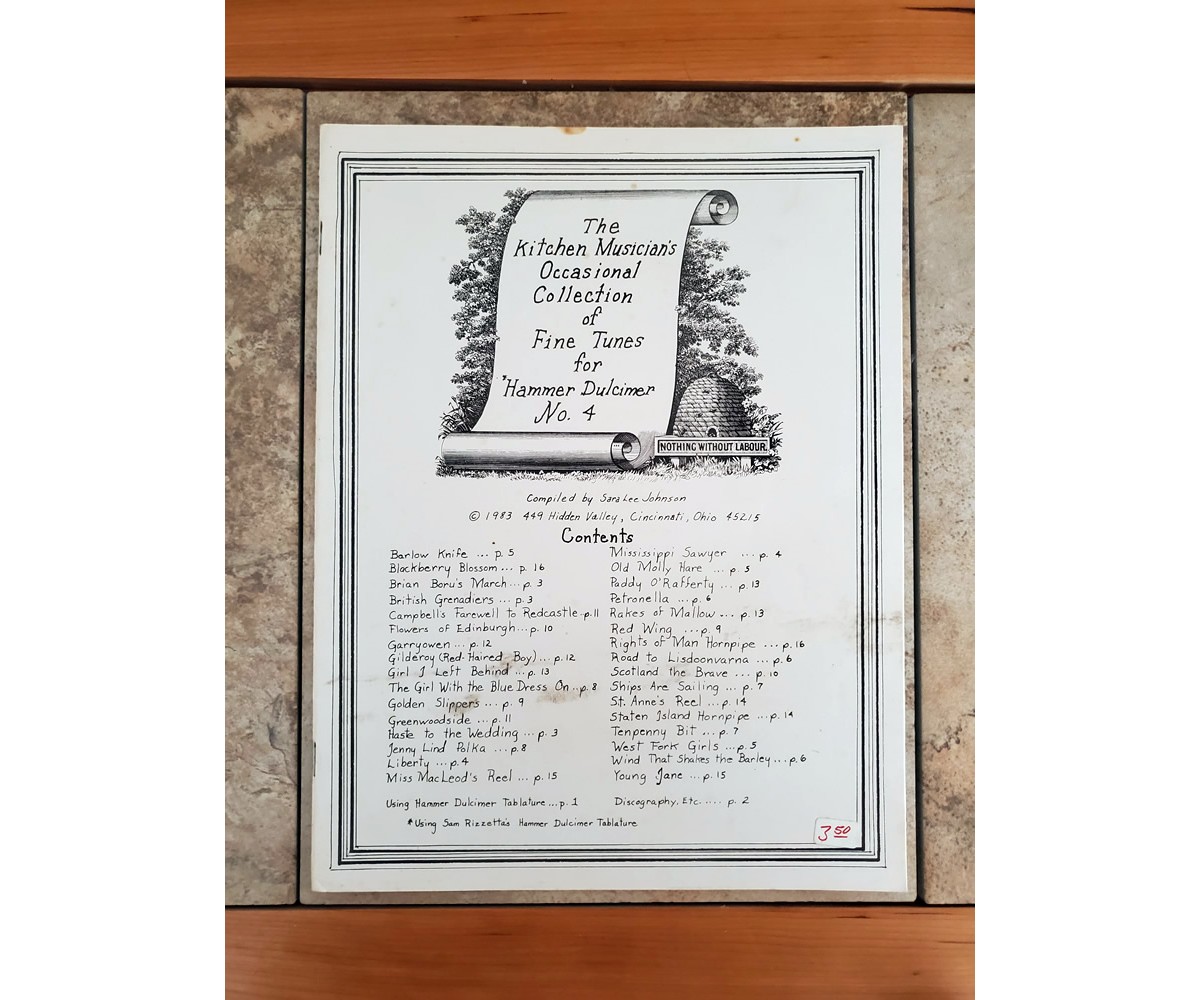 The
Kitchen Musician's
Occasional
Collection
of
Fine Tunes
for
*Hammer Dulcimer
No. 4
NOTHING WITHOUT LABOUR.
Compiled by Sara Lee Johnson
© 1983 449 Hidden Valley, Cincinnati, Ohio 45215
Contents
Barlow Knife ... p. 5
Blackberry Blossom ... p. 16
Brian Boru's March ... p. 3
British Grenadiers ... p. 3
Campbell's Farewell to Redcastle ..p. 11
Flowers of Edinburgh ... p. 10
Garryowen ... p. 12
Gilderoy (Red-Haired Boy) ... p. 12
Girl I Left Behind ... p. 13
The Girl With the Blue Dress On ...p. 8
Golden Slippers ... p. 9
Greenwoodside ... p. 11
Haste to the Wedding ... p. 3
Jenny Lind Polka ... p. 8
Liberty ... p. 4
Miss MacLeod's Reel ... p. 15
Mississippi Sawyer ... p. 4
Old Molly Hare ... p. 5
Paddy O'Rafferty ... p. 13
Petronella ... p. 6
Rakes of Mallow ... p. 13
Red Wing ... p. 9
Rights of Man Hornpipe ... p. 16
Road to Lisdoonvarna ... p. 6
Scotland the Brave ... p. 10
Ships Are Sailing ... p. 7
St. Anne's Reel ... p. 14
Staten Island Hornpipe ... p. 14
Tenpenny Bit ... p. 7
West Fork Girls ... p. 5
Wind That Shakes the Barley ... p. 6
Young Jane ... p. 15
Using Hammer Dulcimer Tablature ... p. 1
Discography, Etc. .... p. 2
*Using Sam Rizzetta's Hammer Dulcimer Tablature
3 50